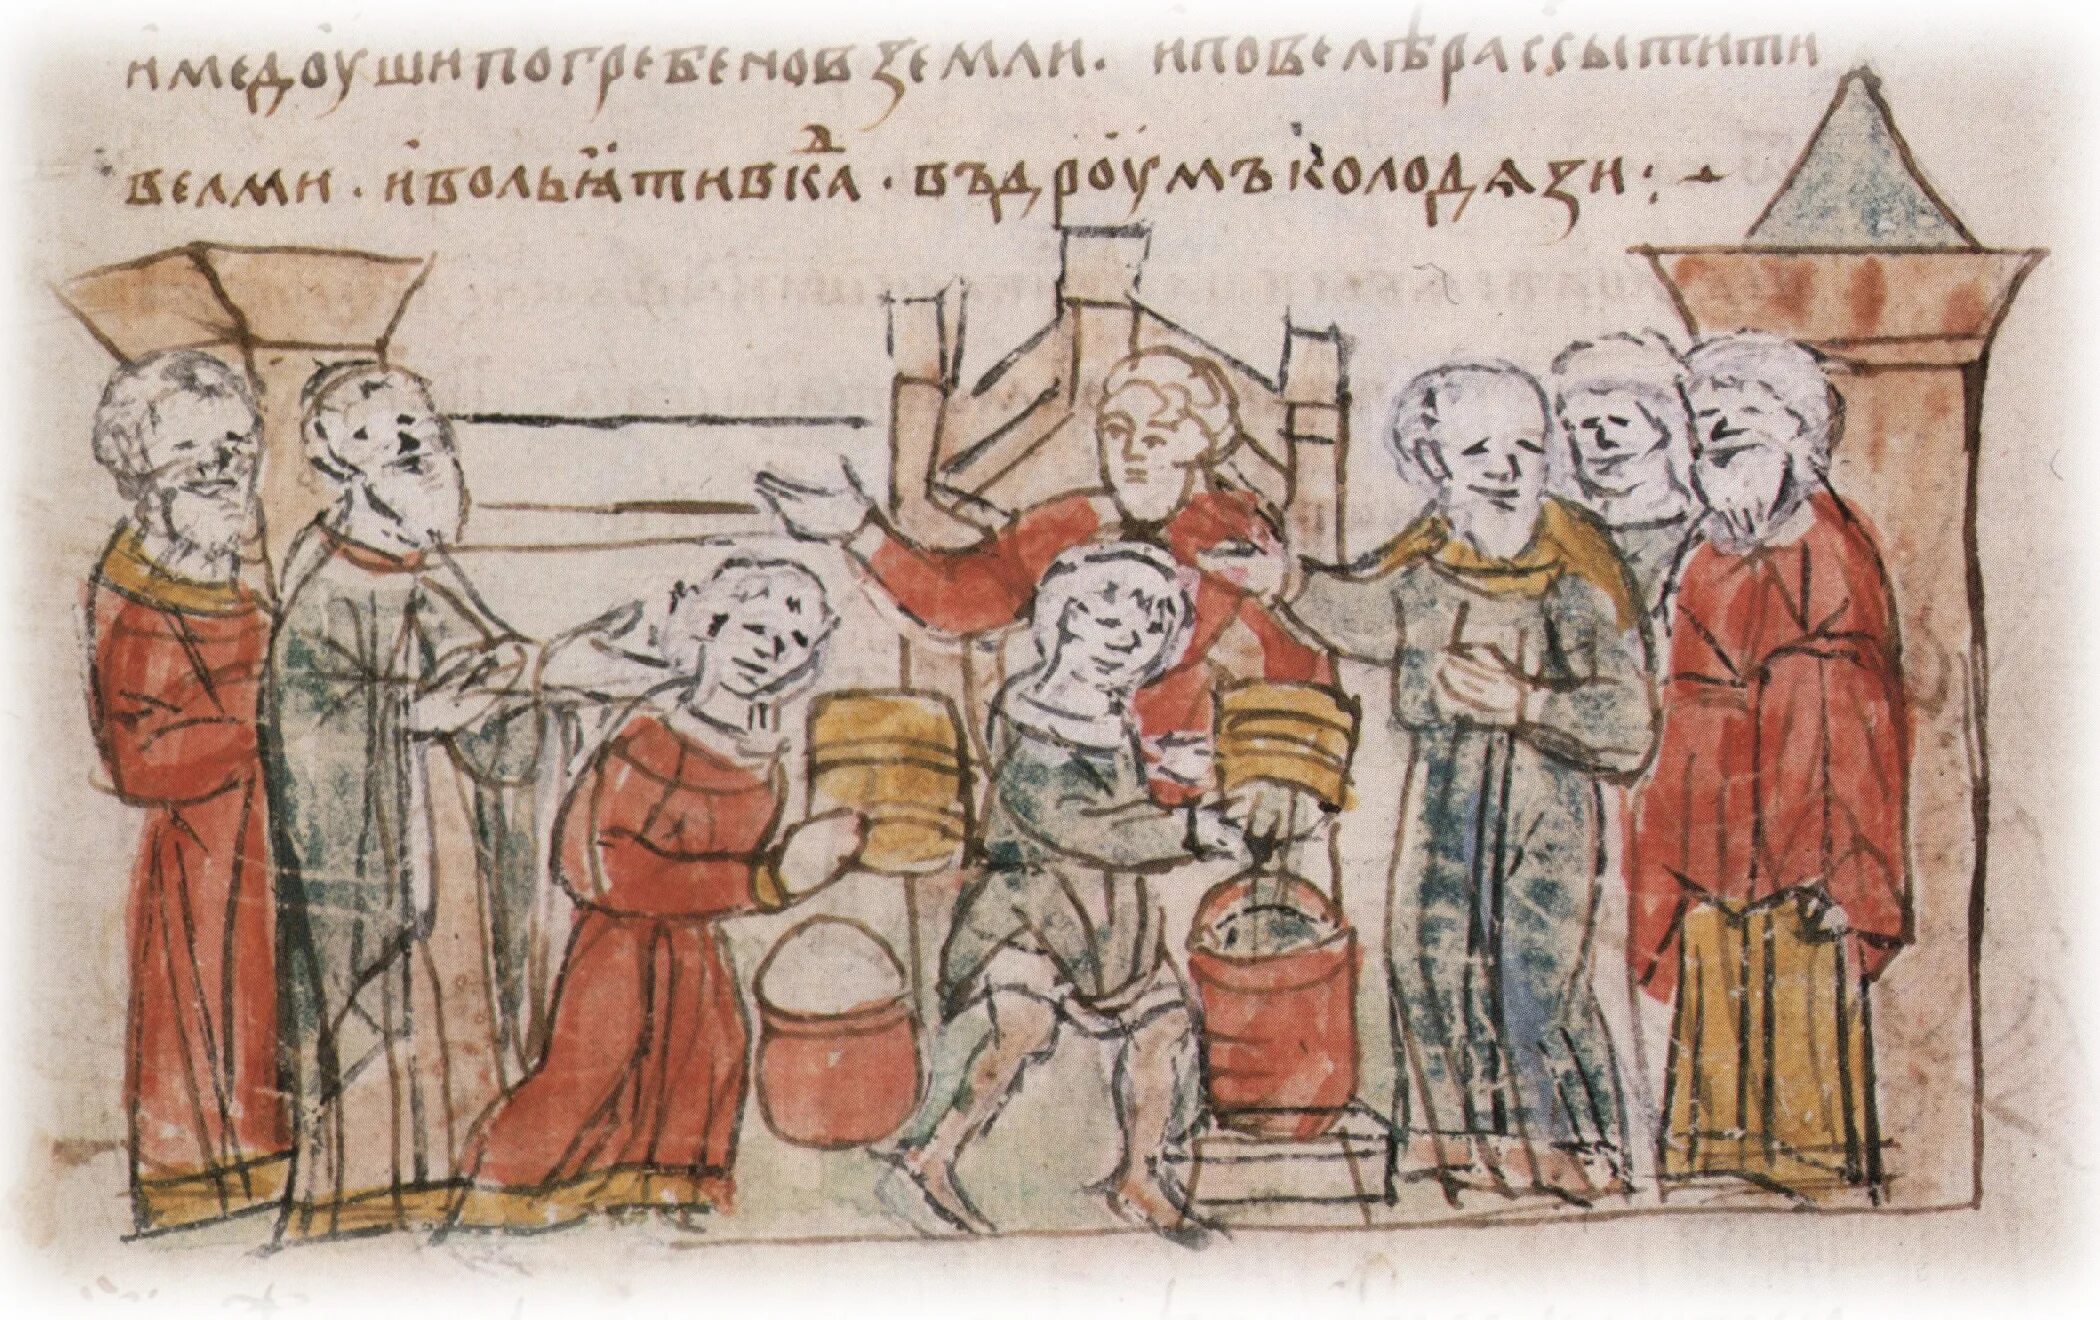 имедоушипогребеновземли. иповелѣрассытити
велми. ивольꙗтивкаⷣ. въдроумъколодязи: